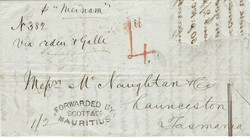 p "Meinam"
N 389
via Aden & Galle
4
Messrs McNaughton & Co
Launceston
Tasmania
FORWARDED BY
SCOTT & Co
MAURITIUS
1/2